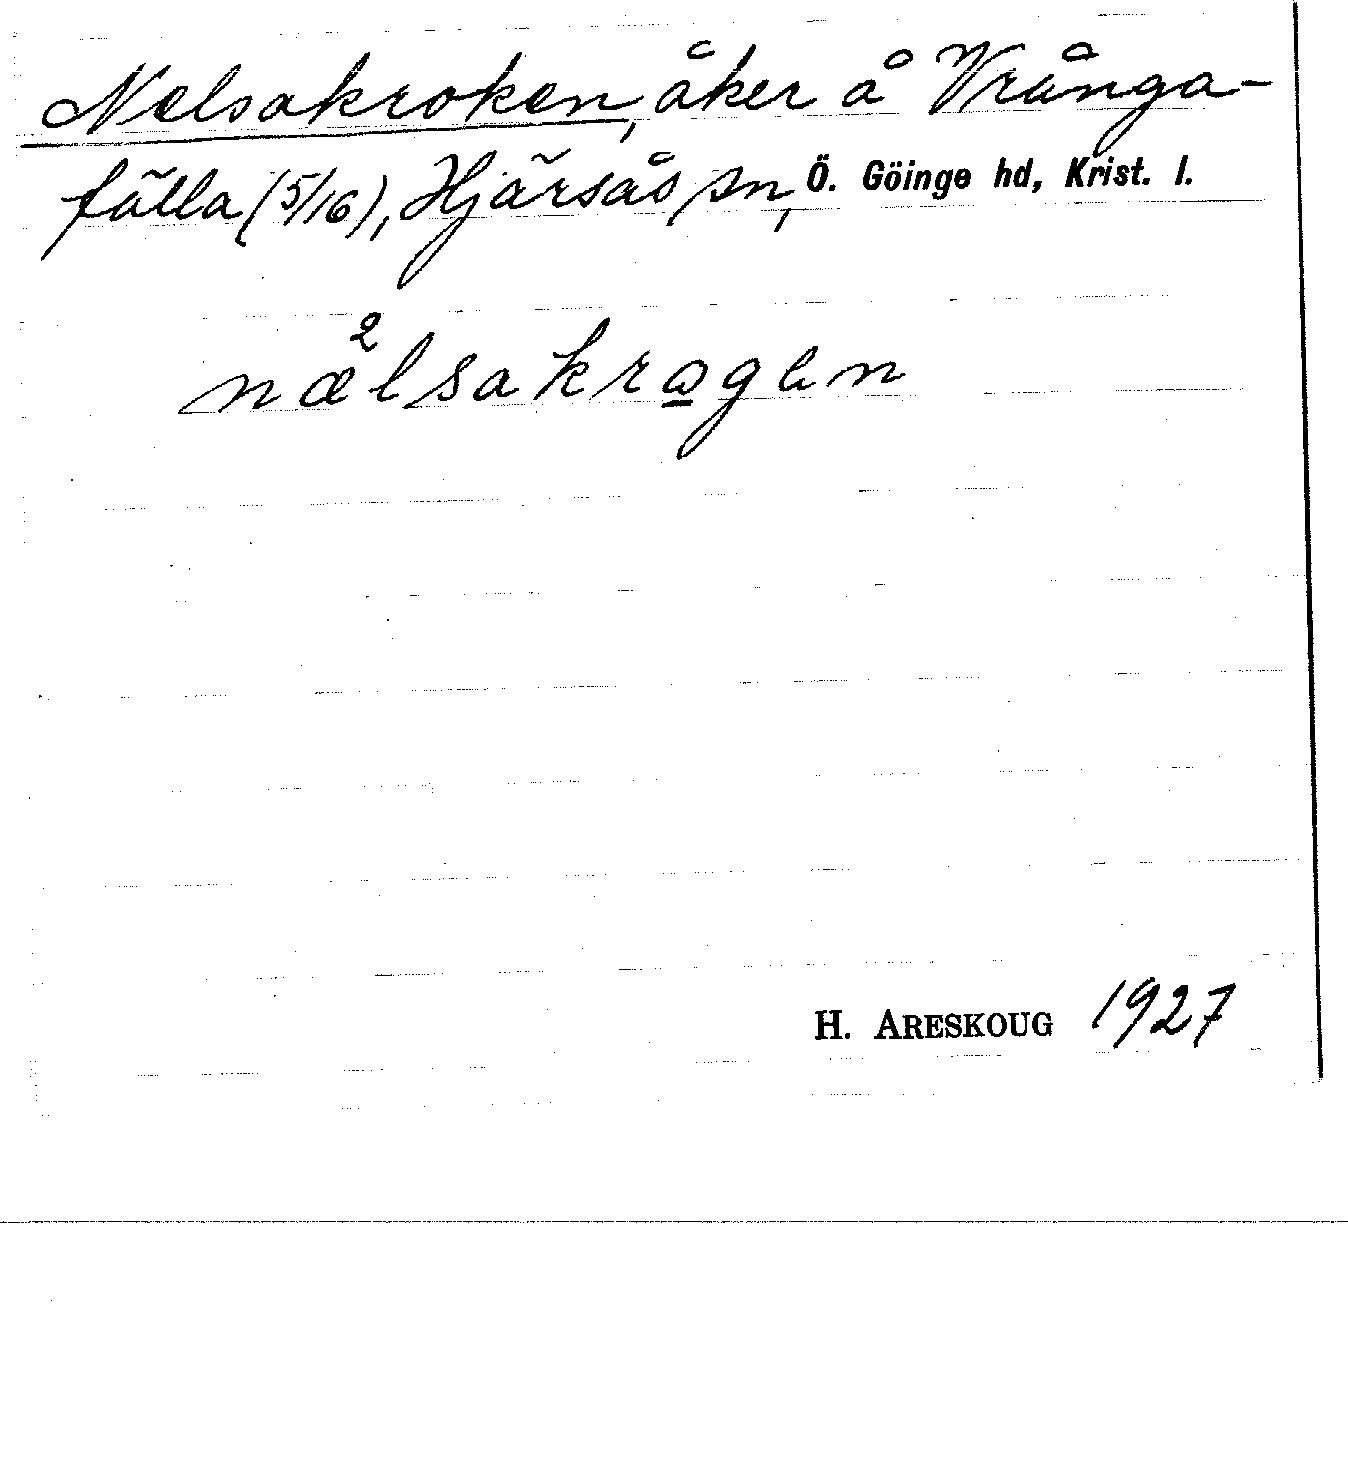 Nelsakroken, åker å Vrånga-
fälla (5/16), Hjärsås sn, Ö. Göinge hd, Krist. l.
næ2lsakrogen
H. ARESKOUG 1927